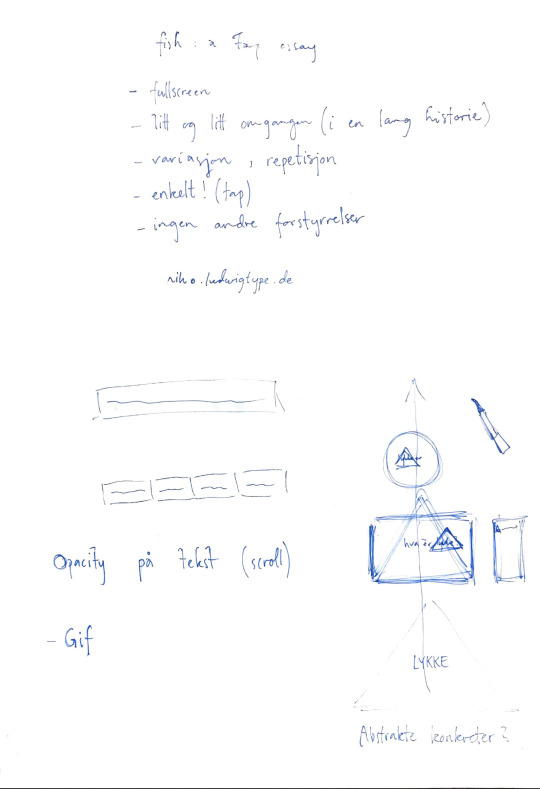 fish: a Tap essay
- fullscreen
- litt og litt omgangen (i en lang historie)
- variasjon, repetisjon
- enkelt! (tap)
- ingen andre forstyrrelser
niko.ludwigtype.de
Opacity på tekst (scroll)
- Gif
hva er
LYKKE
Abstrakte konkreter?